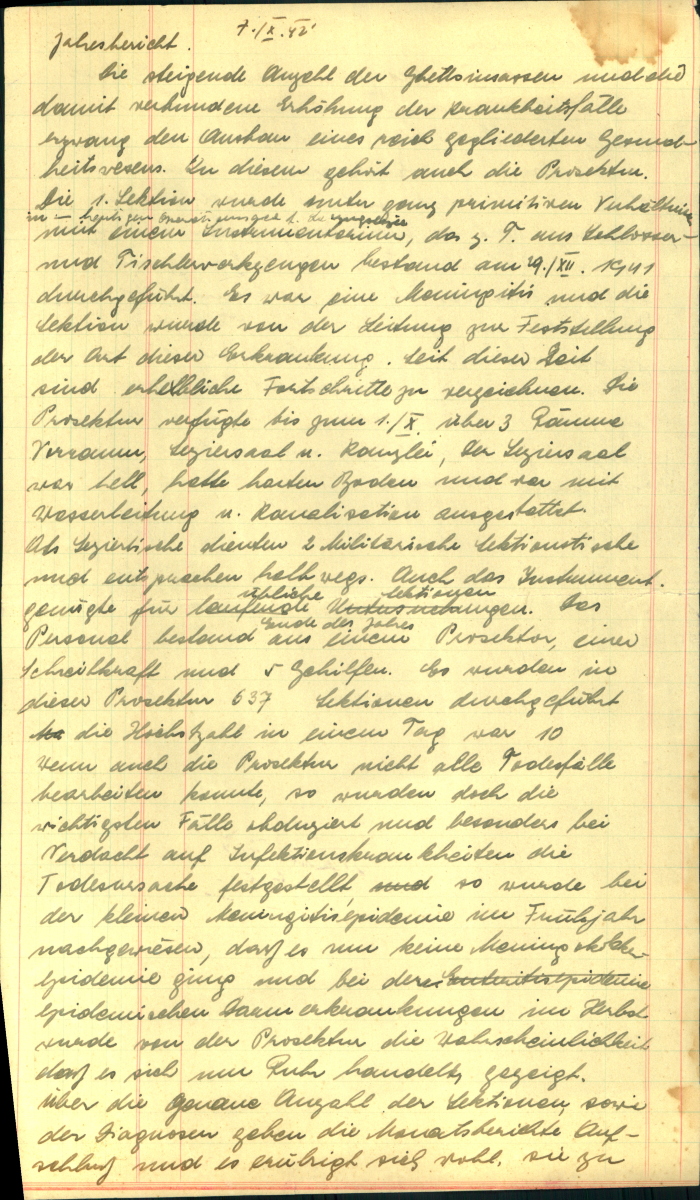 7./X.42
Jahresbericht.
Die steigende Anzahl der Ghettoinsassen und die
damit verbundene Erhöhung der Krankheitsfälle
erzwang den Ausbau eines reich gegliederten Gesund-
heitswesens. Zu diesem gehört auch die Prosektur.
Die 1. Sektion wurde unter ganz primitiven Verhältnissen
in
mit einem Instrumentarium, das z. T. aus Schlosser-
und Tischlerwerkzeugen bestand am 29./XII. 1941
durchgeführt. Es war eine Meningitis und die
Sektion wurde von der Leitung zur Feststellung
der Art dieser Erkrankung. Seit dieser Zeit
sind erhebliche Fortschritte zu verzeichnen. Die
Prosektur verfügte bis zum 1./X. über 3 Räume
Vorraum, Seziersaal u. Kanzlei, der Seziersaal
war hell, hatte harten Boden und war mit
Wasserleitung u. Kanalisation ausgestattet.
Als Seziertische dienten 2 Militärische Sektionstische
und entsprachen halbwegs. Auch das Instrument.
übliche Sektionen
genügte für laufende Untersuchungen. Das
Ende des Jahres
Personal bestand aus einem Prosektor, einer
Schreibkraft und 5 Gehilfen. Es wurden in
dieser Prosektur 637 Sektionen durchgeführt
die Höchstzahl in einem Tag war 10
Wenn auch die Prosektur nicht alle Todesfälle
bearbeiten konnte, so wurden doch die
wichtigsten Fälle obduziert und besonders bei
Verdacht auf Infektionskrankheiten die
Todesursache festgestellt, und so wurde bei
der kleinen Meningitisepidemie im Frühjahr
nachgewiesen, daß es um keine Meningokokken-
epidemie ging und bei der Enteritisepidemie
epidemischen Darmerkrankungen im Herbst
wurde von der Prosektur die Wahrscheinlichkeit
daß es sich um Ruhr handelt, gezeigt.
Über die genaue Anzahl der Sektionen, sowie
der Diagnosen geben die Monatsberichte Auf-
schluß und es erübrigt sich wohl, sie zu